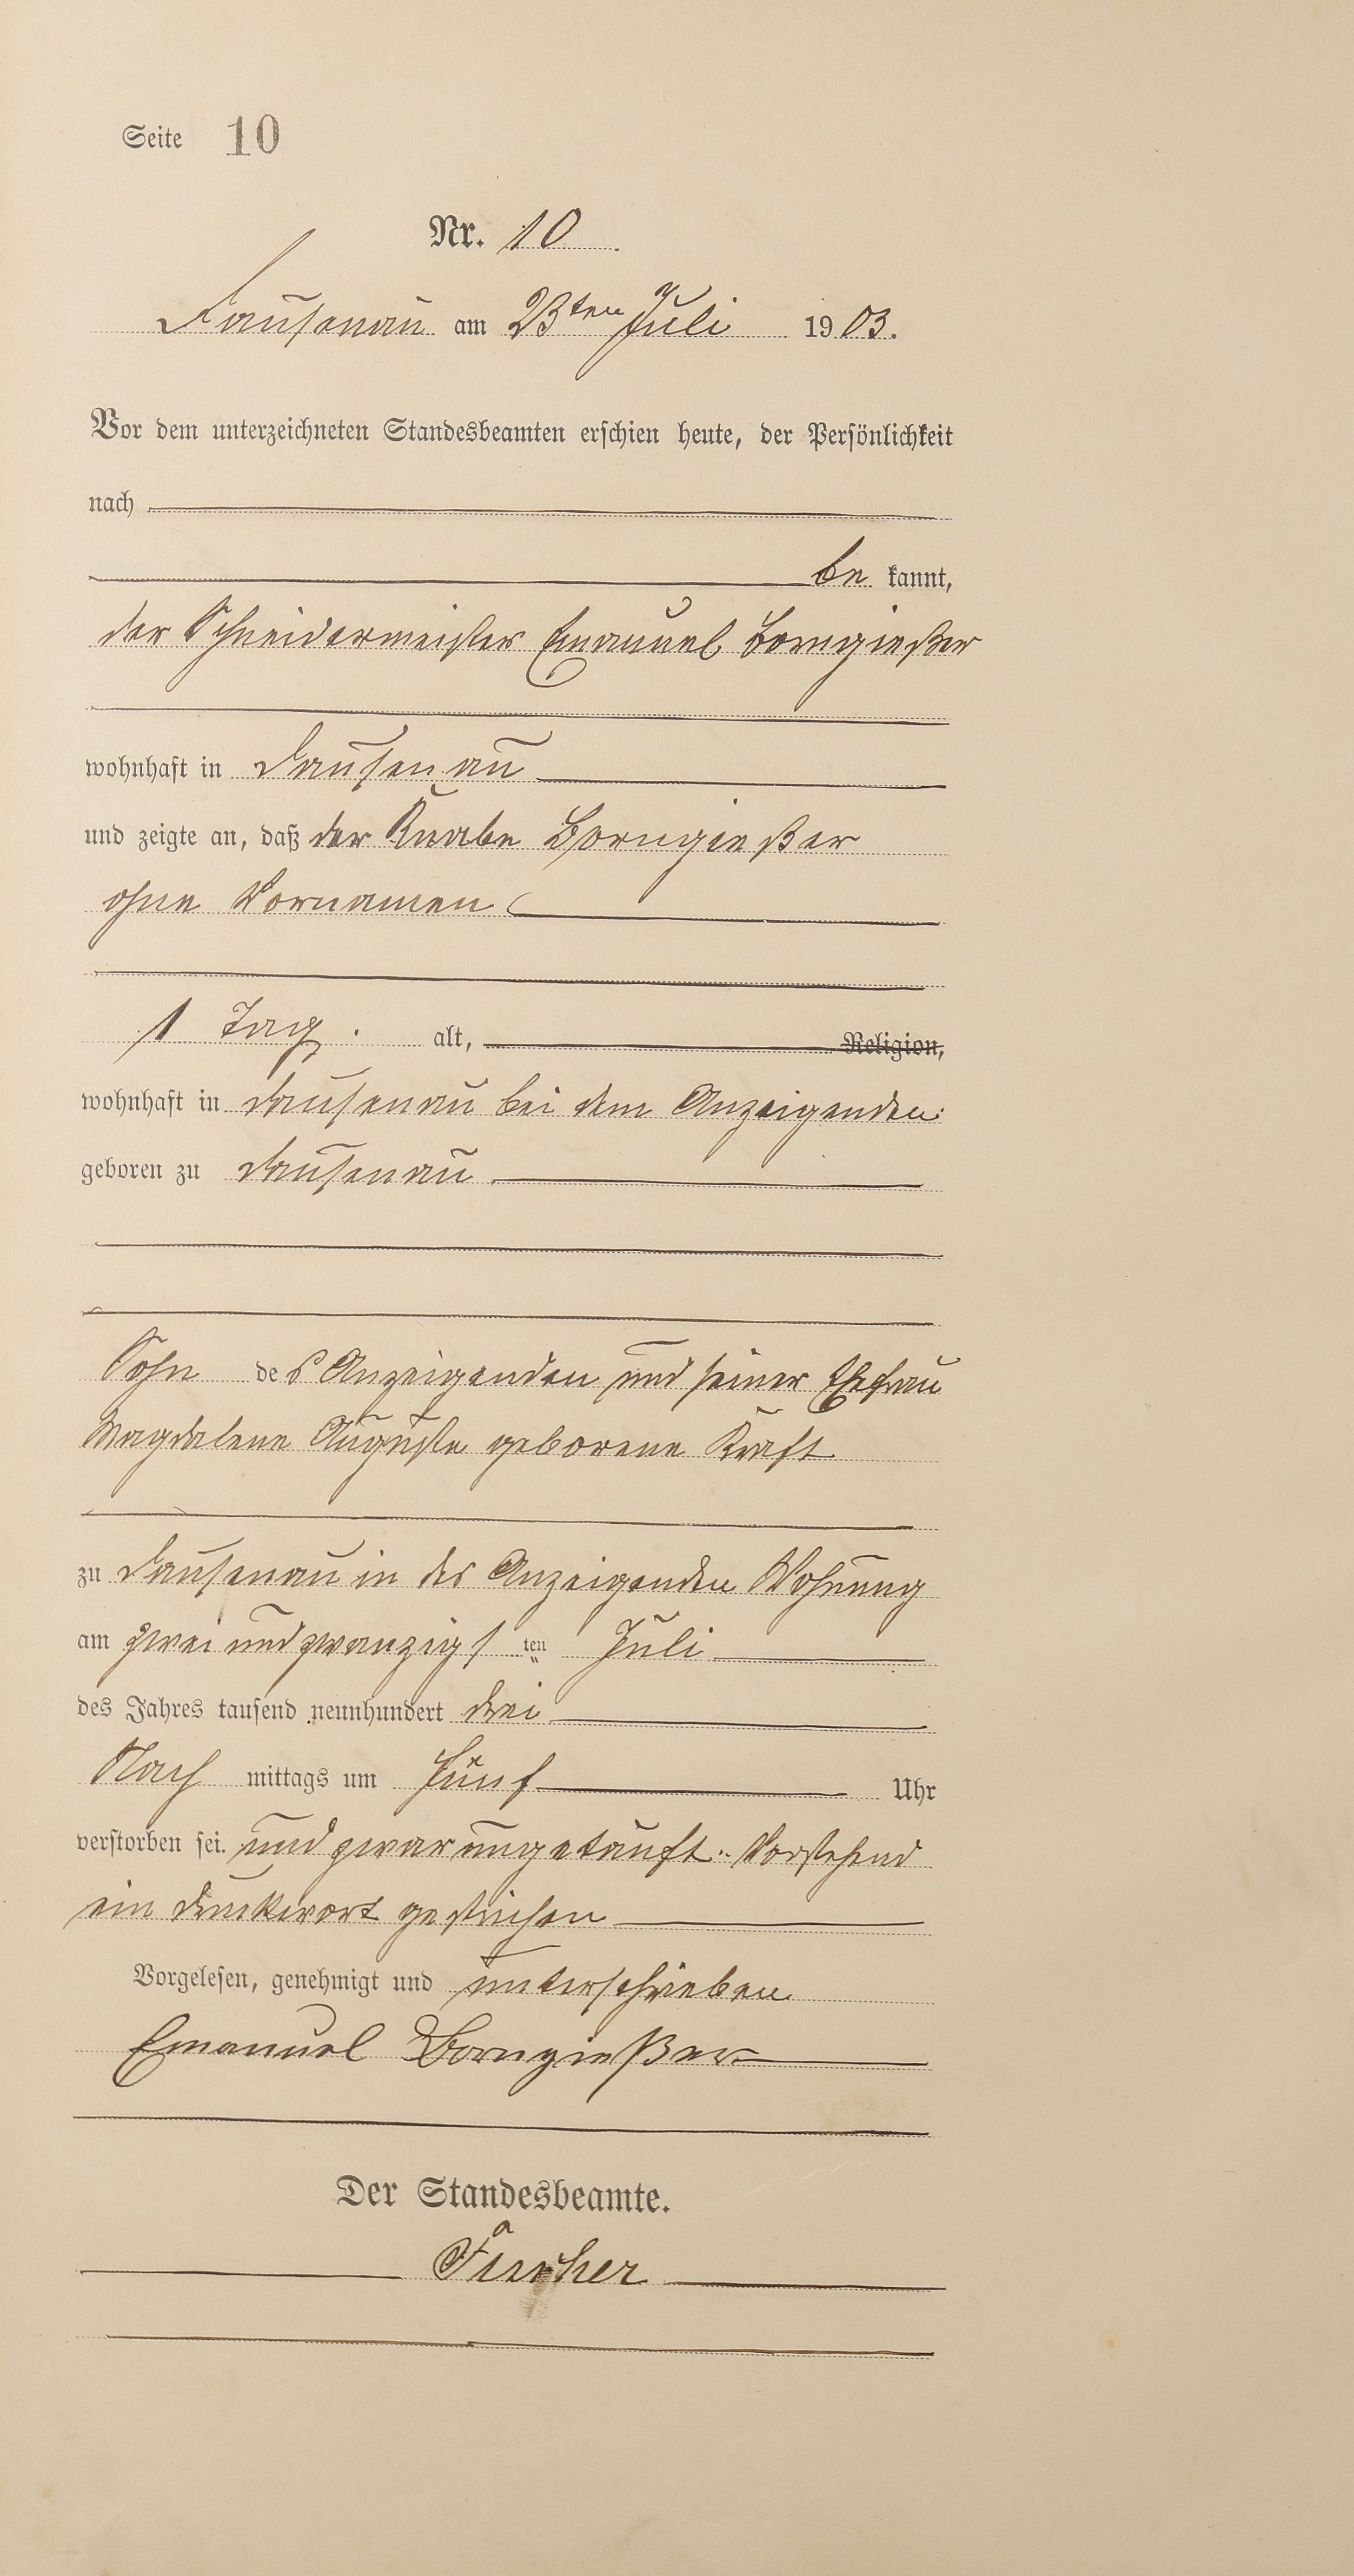 Seite 10
Nr. 10
Dausenau am 23ten Juli 1903.
Vor dem unterzeichneten Standesbeamten erschien heute, der Persönlichkeit
nach
be kannt,
der Schneidermeister Emanuel Borngießer
wohnhaft in Dausenau
und zeigte an, daß der Knabe Borngießer
ohne Vornamen
1 Tag. alt, Religion,
wohnhaft in Dausenau bei dem Anzeigenden
geboren zu Dausenau
Sohn des Anzeigenden und seiner Ehefrau
Magdalene Auguste geborene Kraft
zu Dausenau in des Anzeigenden Wohnung
am zwei und zwanzigsten Juli
des Jahres tausend neunhundert drei
Nach mittags um fünf Uhr
verstorben sei. und zwar ungetauft. Vorstehend
ein Druckwort gestrichen
Vorgelesen, genehmigt und unterschrieben
Emanuel Borngießer
Der Standesbeamte.